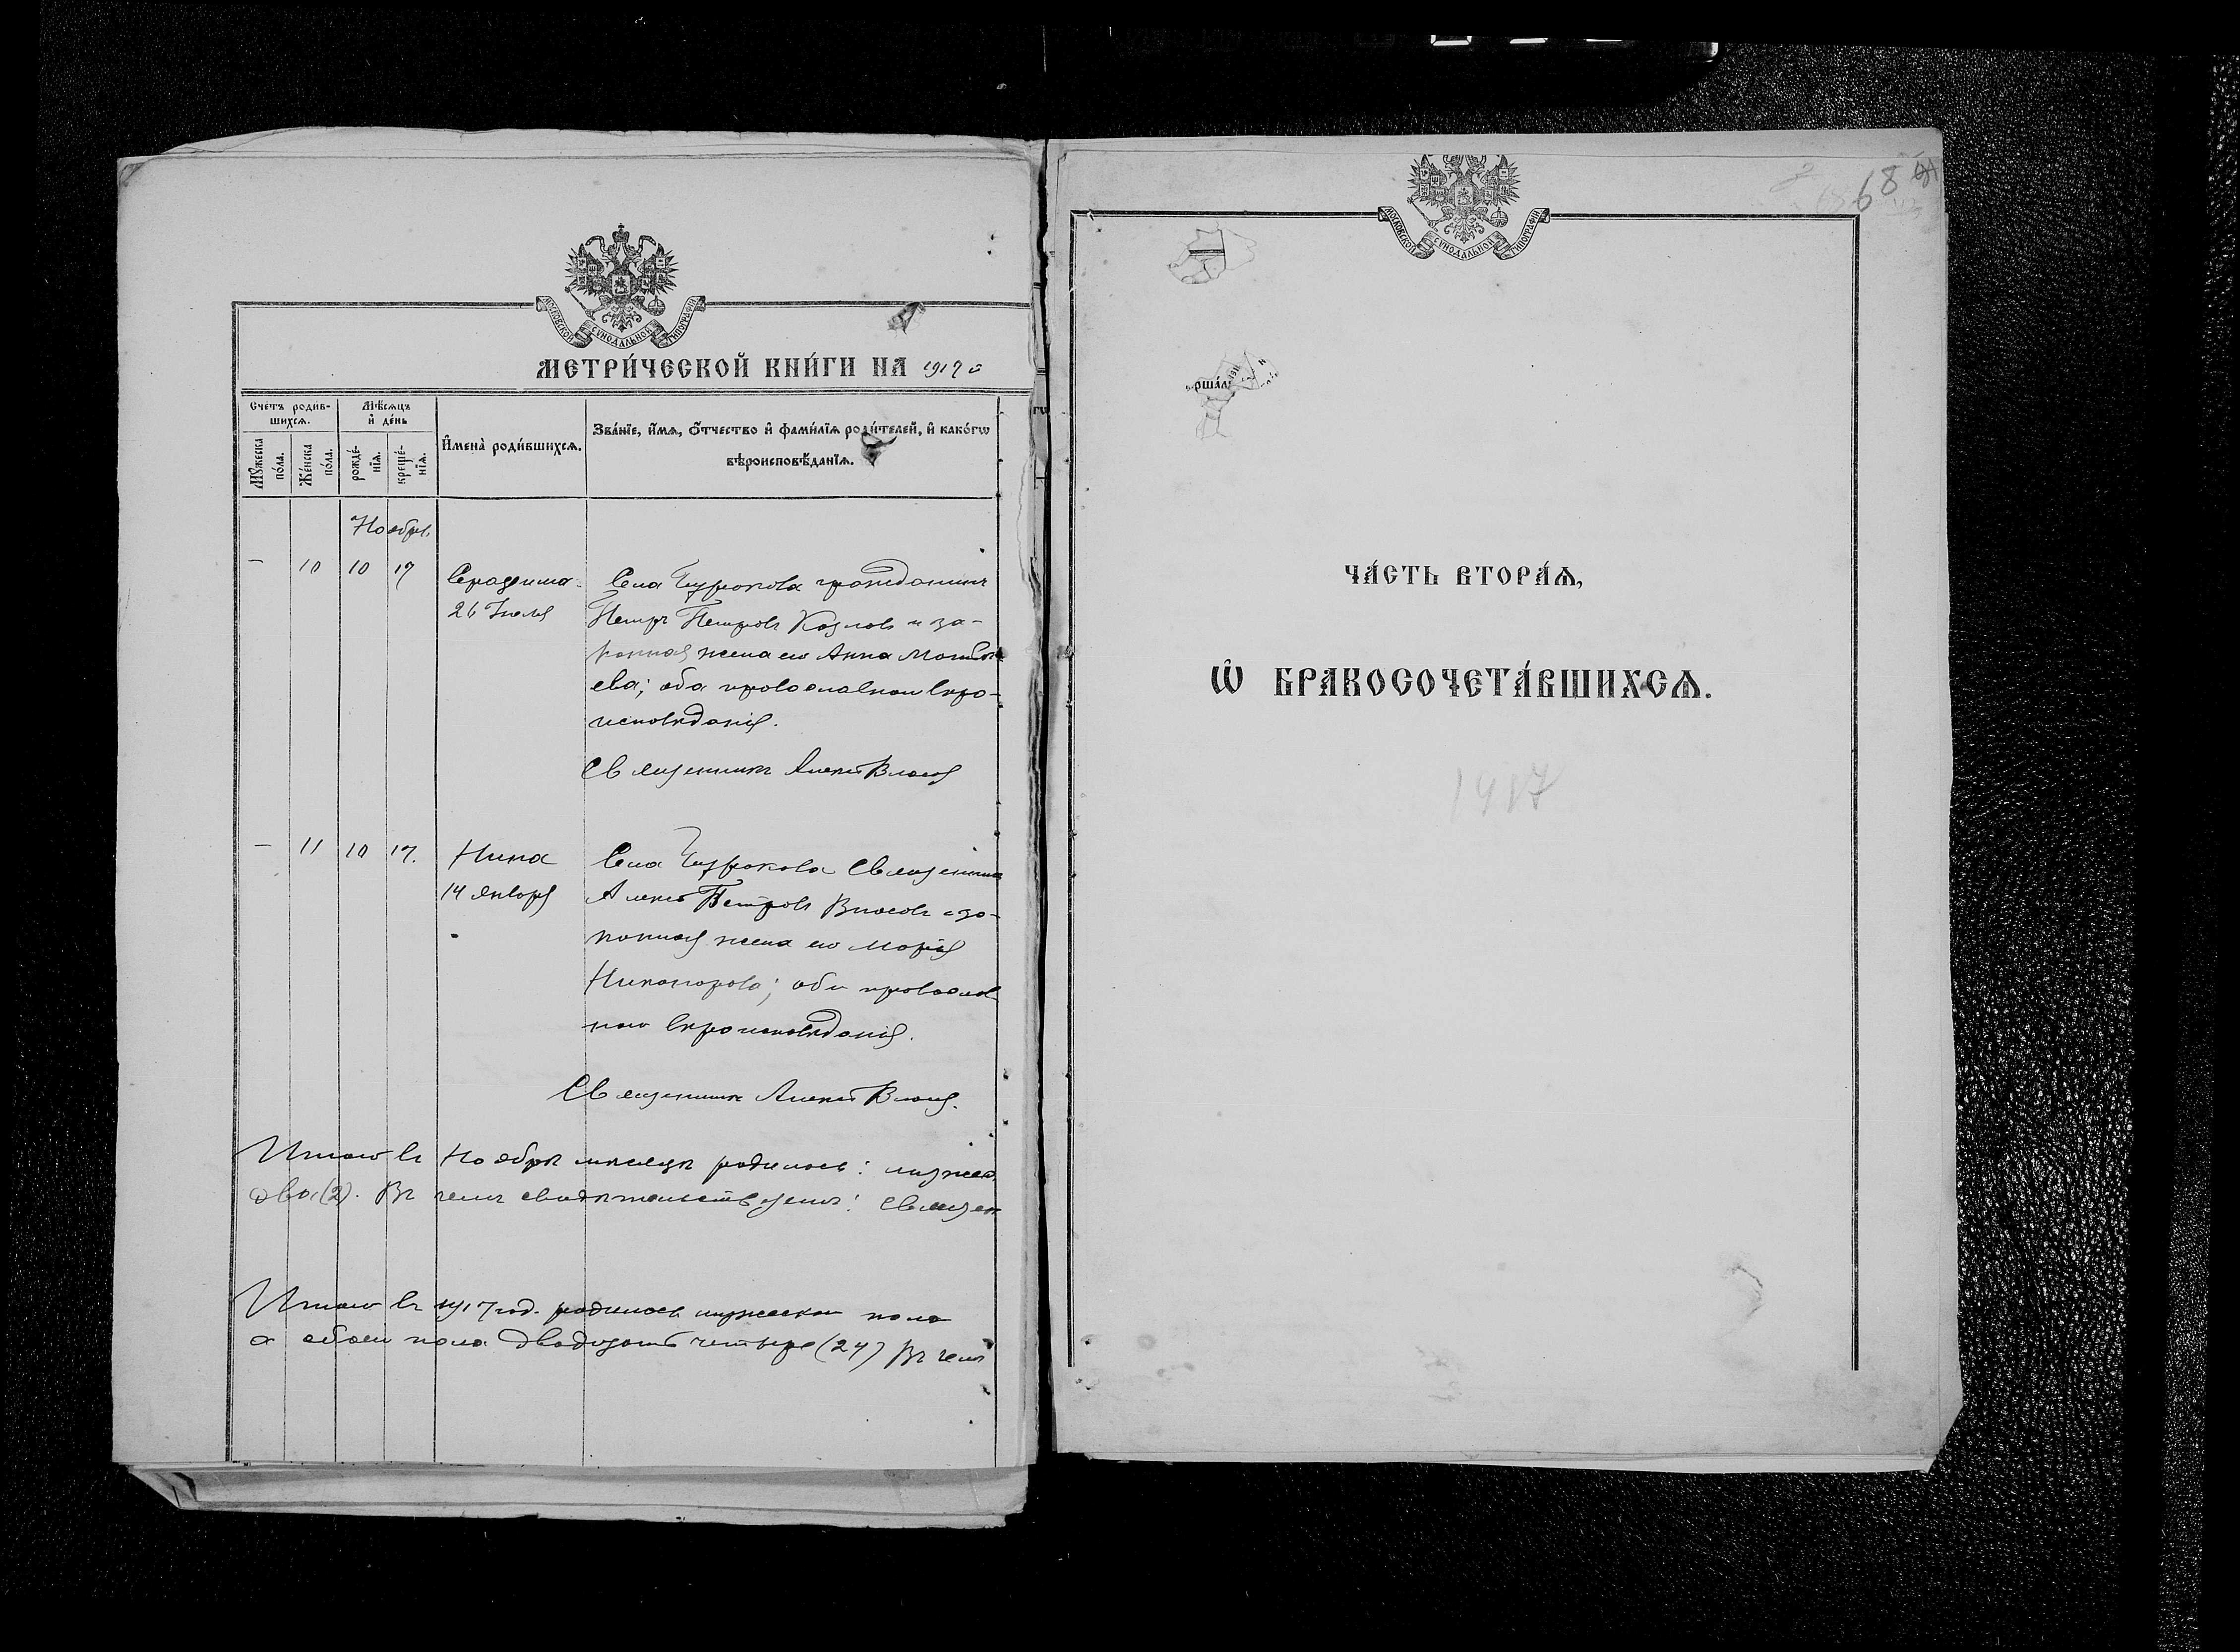 МОСКОВСКОЙ СѴНОДАЛЬНОЙ ТИПОГРАФІИ
МЕТРИ́ЧЕСКОЙ КНИ́ГИ НА 1917 г
Сче́тъ роди́в-
шихсѧ.
Мѣ́сѧцъ
и҆ де́нь
Мꙋ́жеска
по́ла.
Же́нска
по́ла.
рожде́-
нїѧ.
креще́-
нїѧ.
И҆мена̀ роди́вшихсѧ.
Зва́нїе, и҆́мѧ, о҆́тчество и҆ фами́лїѧ роди́телей, и҆ како́гѡ
вѣроисповѣ́данїѧ.
Ноябрь
– 10 10 17
Серафима
26 Іюля
Села гражданинъ
Петръ Петровъ Козловъ и за-
конная жена его Анна Матвѣ
ева; оба православнаго вѣро-
исповѣданія.
Священникъ Алексѣй Власов
– 11 10 17.
Нина
14 января
Села Священникъ
Алексѣй Петровъ Власовъ и за-
конная жена его Марія
Никанорова; оба православ
наго вѣроисповѣданія.
Священникъ Алексѣй Власов.
Итого въ Ноябрѣ мѣсяцѣ родилось: мужеск
два (2). Въ чемъ свидѣтельствуемъ: Священ
Итого въ 1917 год. родилось мужескаго пола
а обоего пола двадцать четыре (24) Въ чемъ
МОСКОВСКОЙ СѴНОДАЛЬНОЙ ТИПОГРАФІИ
68
ЧА́СТЬ ВТОРА́Ѧ,
Ѡ҆ БРАКОСОЧЕТА́ВШИХСѦ.
1917